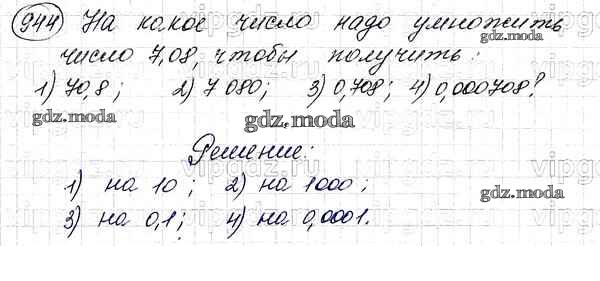 944 На какое число надо умножить
число 7,08, чтобы получить:
1) 70,8; 2) 7 080; 3) 0,708; 4) 0,000708?
gdz.moda
gdz.moda
gdz.moda
Решение:
1) на 10; 2) на 1000;
gdz.moda
3) на 0,1; 4) на 0,0001.